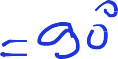 = 90°